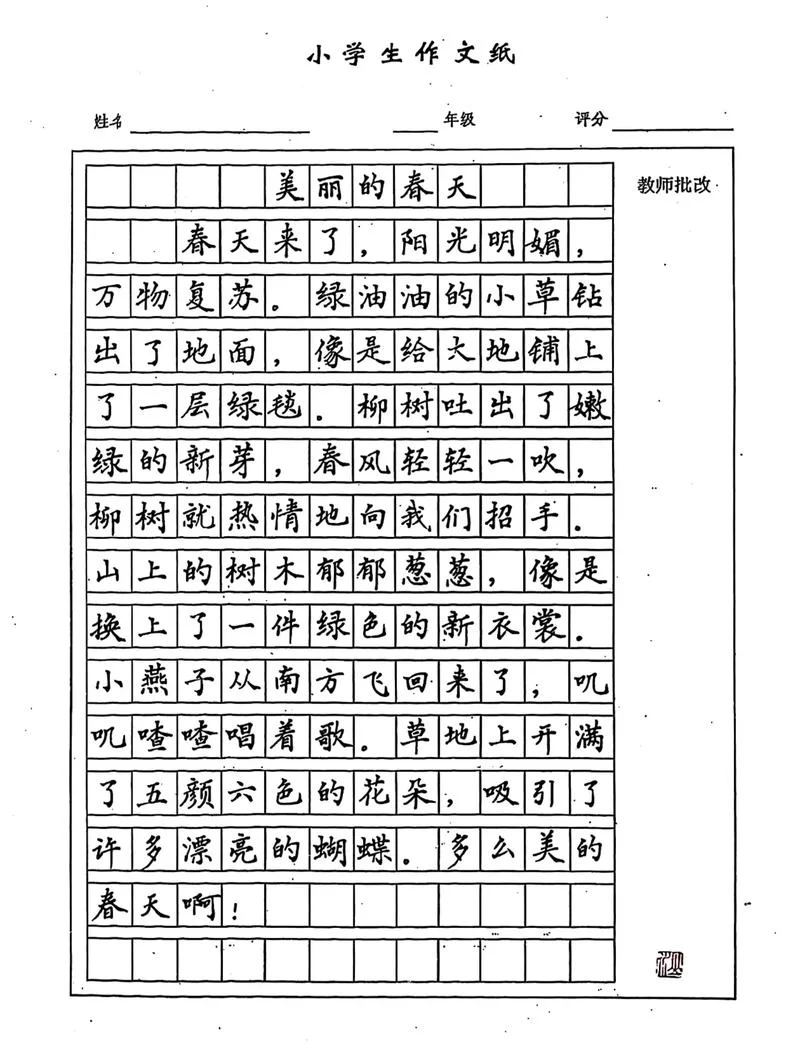 小学生作文纸
姓名 年级 评分
教师批改
美丽的春天
春天来了，阳光明媚，
万物复苏。绿油油的小草钻
出了地面，像是给大地铺上
了一层绿毯。柳树吐出了嫩
绿的新芽，春风轻轻一吹，
柳树就热情地向我们招手。
山上的树木郁郁葱葱，像是
换上了一件绿色的新衣裳。
小燕子从南方飞回来了，叽
叽喳喳唱着歌。草地上开满
了五颜六色的花朵，吸引了
许多漂亮的蝴蝶。多么美的
春天啊！